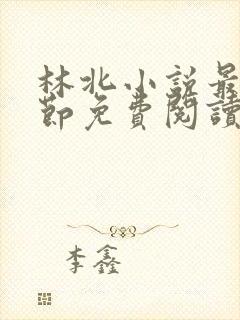 林北小說最
節免費閱讀
李鑫